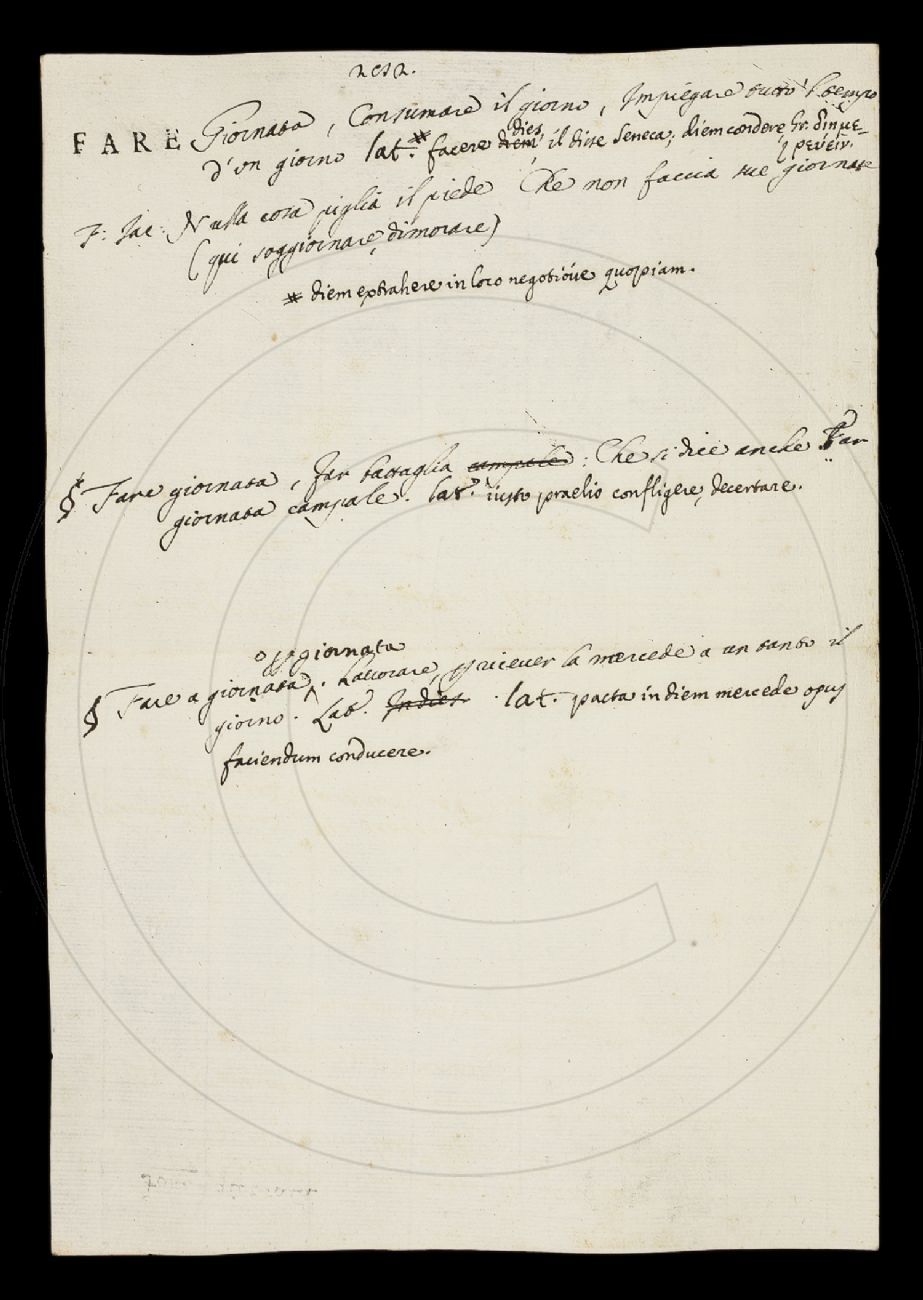 FARE Giornata, Consumare il giorno, Impiegare tutto 'l tempo
d'un giorno lat.* facere diem dies, il dice Seneca, diem condere, Gr. διημε-
ρεύειν.
F. Jac. Nulla cosa piglia il piede Che non faccia sue giornate
(qui soggiornare, dimorare)
* diem extrahere in loco negotiove quopiam.
§ Fare giornata, far battaglia campale: Che si dice anche Far
giornata campale. lat. iusto praelio confligere, decertare.
o giornata
§ Fare a giornata. Lavorare, e ricever la mercede a un tanto il
giorno. Lat. In dies. lat. pacta in diem mercede opus
faciendum conducere.